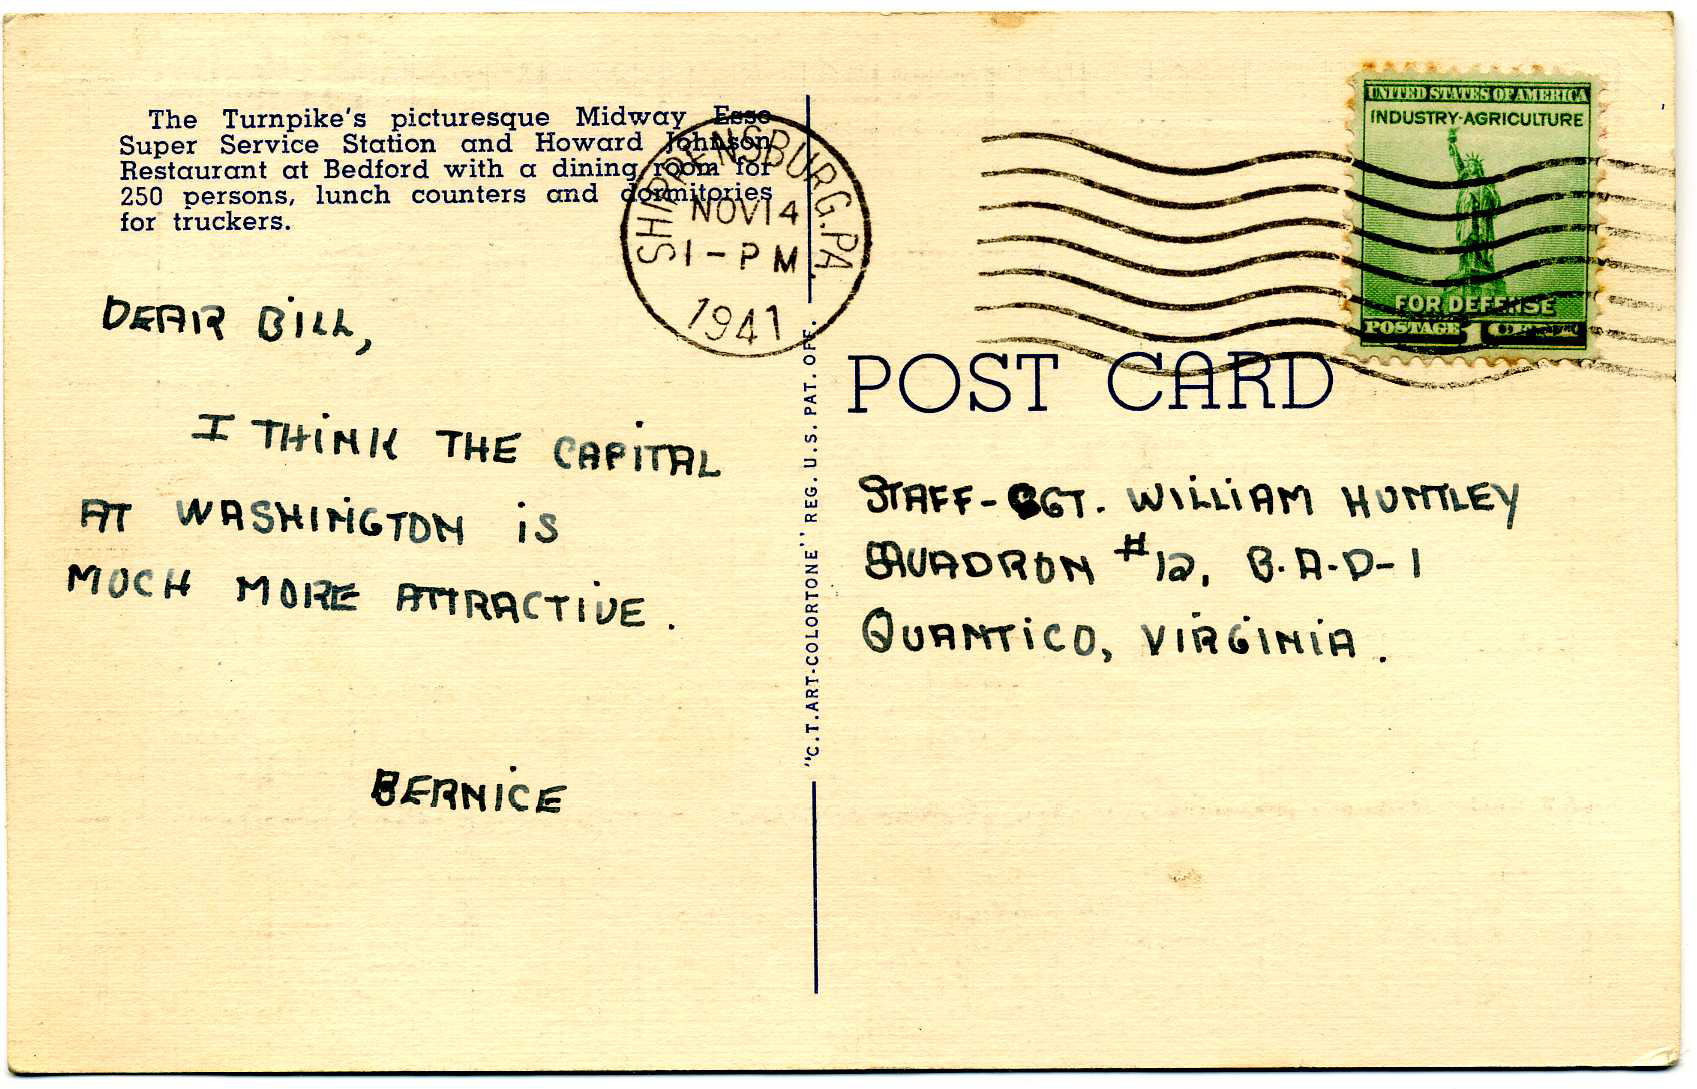 The Turnpike's picturesque Midway Esso
Super Service Station and Howard Johnson
Restaurant at Bedford with a dining room for
250 persons, lunch counters and dormitories
for truckers.
SHIPPENSBURG, PA.
NOV 14
1 - P M
1941
UNITED STATES OF AMERICA
INDUSTRY·AGRICULTURE
FOR DEFENSE
POSTAGE 1 CENT
DEAR BILL,
I THINK THE CAPITAL
AT WASHINGTON IS
MUCH MORE ATTRACTIVE.
BERNICE
"C.T.ART-COLORTONE" REG. U.S. PAT. OFF.
POST CARD
STAFF-SGT. WILLIAM HUNTLEY
SQUADRON #12, B·A·D-1
QUANTICO, VIRGINIA.